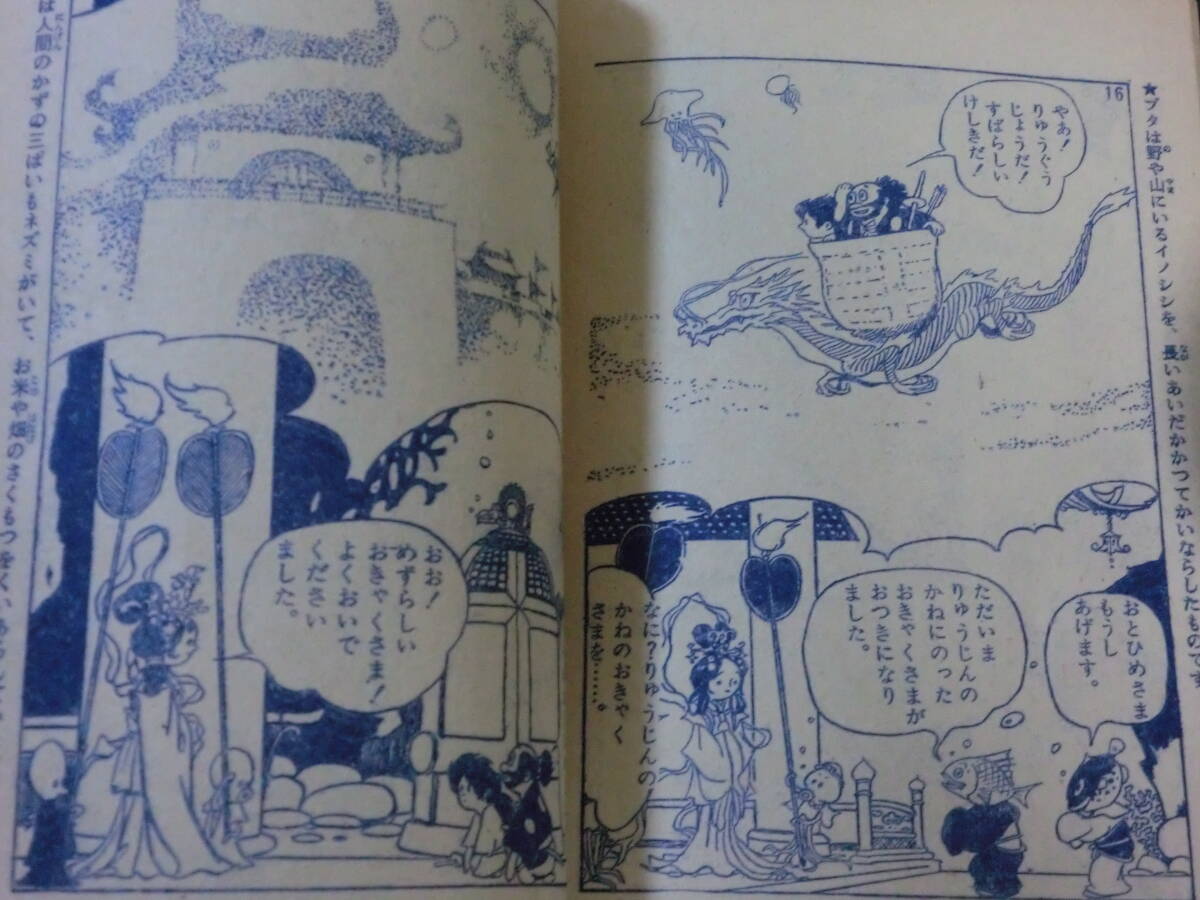 16
★ブタは野や山にいるイノシシを、長いあいだかかつてかいならしたものです
やあ!
りゅうぐう
じょうだ!
すばらしい
けしきだ!
おとひめさま
もうし
あげます。
ただいま
りゅうじんの
かねにのった
おきゃくさまが
おつきになり
ました。
なに?りゅうじんの
かねのおきゃく
さまを……。
おお!
めずらしい
おきゃくさま!
よくおいで
ください
ました。
は人間のかずの三ばいもネズミがいて、お米や畑のさくもつをくい